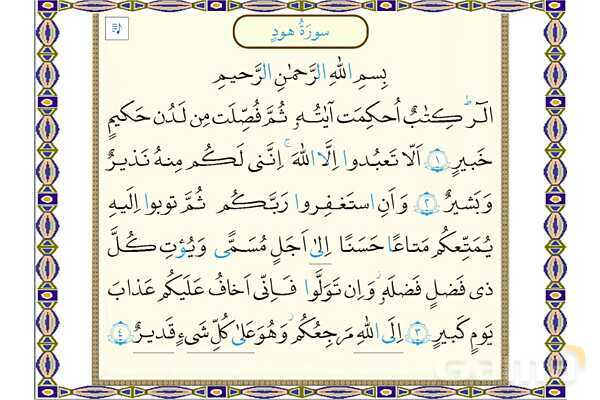 سورَةُ هودٍ
بِسمِ اللهِ الرَّحمٰنِ الرَّحيمِ
الٓر ۚ كِتٰبٌ اُحكِمَت آيٰتُهٗ ثُمَّ فُصِّلَت مِن لَدُن حَكيمٍ
خَبيرٍ ﴿١﴾ اَلّا تَعبُدوا اِلَّا اللهَ ۚ اِنَّنى لَكُم مِنهُ نَذيرٌ
وَ بَشيرٌ ﴿٢﴾ وَ اَنِ استَغفِروا رَبَّكُم ثُمَّ توبوا اِلَيهِ
يُمَتِّعكُم مَتاعًا حَسَنًا اِلىٰ اَجَلٍ مُسَمًّى وَ يُؤتِ كُلَّ
ذى فَضلٍ فَضلَهٗ ۖ وَ اِن تَوَلَّوا فَاِنّى اَخافُ عَلَيكُم عَذابَ
يَومٍ كَبيرٍ ﴿٣﴾ اِلَى اللهِ مَرجِعُكُم ۖ وَ هُوَ عَلىٰ كُلِّ شَىءٍ قَديرٌ ﴿٤﴾